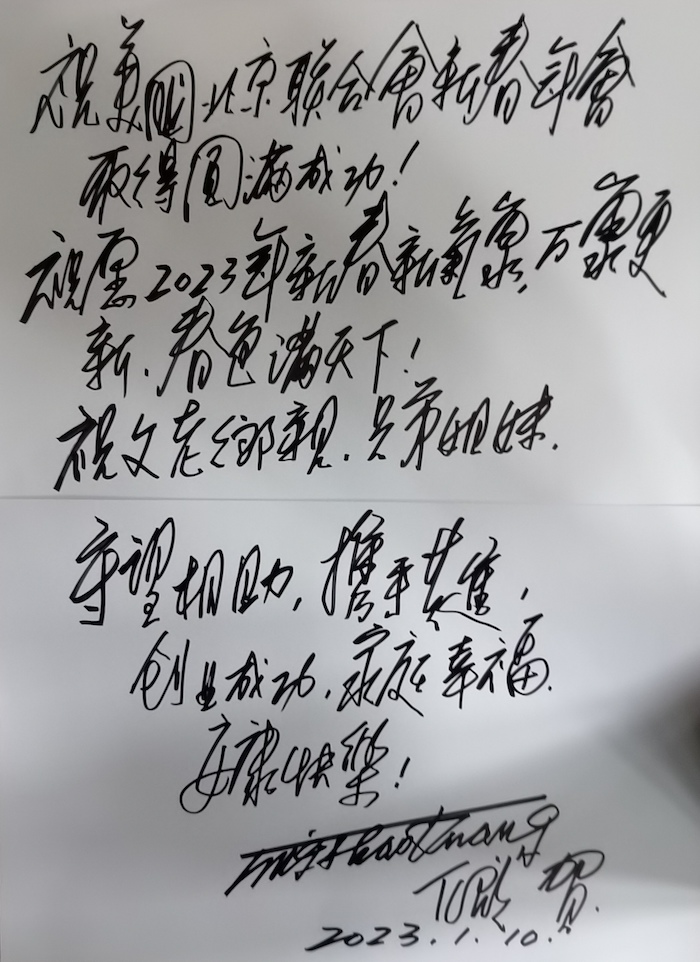 祝美国北京联合會新春年會
取得圆满成功！
祝愿2023年新春新氣象，万象更
新，春色满天下！
祝父老鄉親，兄弟姐妹，
守望相助，携手共進，
创业成功，家庭幸福，
安康快樂！
賀
2023.1.10.